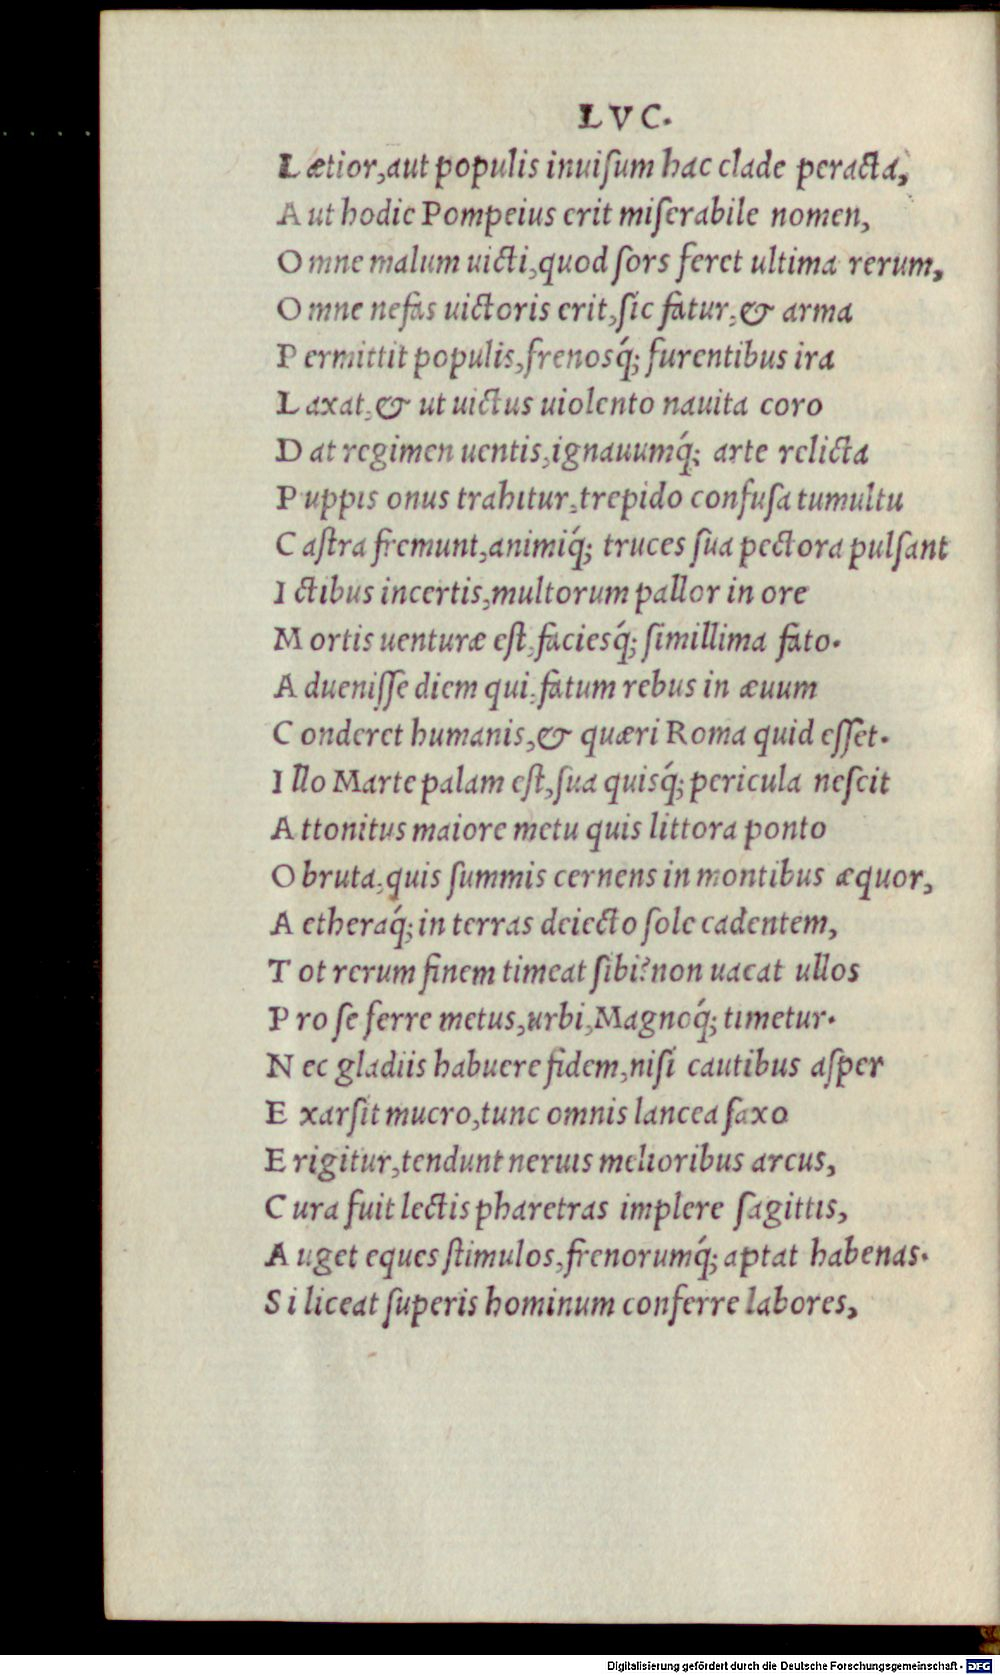 LVC.
Lætior,aut populis inuiſum hac clade peracta,
Aut hodie Pompeius erit miſerabile nomen,
Omne malum uicti,quod ſors feret ultima rerum,
Omne nefas uictoris erit,ſic fatur,& arma
Permittit populis,frenosq́; furentibus ira
Laxat,& ut uictus uiolento nauita coro
Dat regimen uentis,ignauumq́; arte relicta
Puppis onus trahitur,trepido confuſa tumultu
Caſtra fremunt,animiq́; truces ſua pectora pulſant
Ictibus incertis,multorum pallor in ore
Mortis uenturæ eſt,faciesq́; ſimillima fato.
Adueniſſe diem qui,fatum rebus in æuum
Conderet humanis,& quæri Roma quid eſſet.
Illo Marte palam eſt,ſua quisq́; pericula neſcit
Attonitus maiore metu quis littora ponto
Obruta,quis ſummis cernens in montibus æquor,
Aetheraq́; in terras deiecto ſole cadentem,
Tot rerum finem timeat ſibi?non uacat ullos
Pro ſe ferre metus,urbi,Magnoq́; timetur.
Nec gladiis habuere fidem,niſi cautibus aſper
Exarſit mucro,tunc omnis lancea ſaxo
Erigitur,tendunt neruis melioribus arcus,
Cura fuit lectis pharetras implere ſagittis,
Auget eques ſtimulos,frenorumq́; aptat habenas.
Si liceat ſuperis hominum conferre labores,
Digitalisierung gefördert durch die Deutsche Forschungsgemeinschaft - DFG